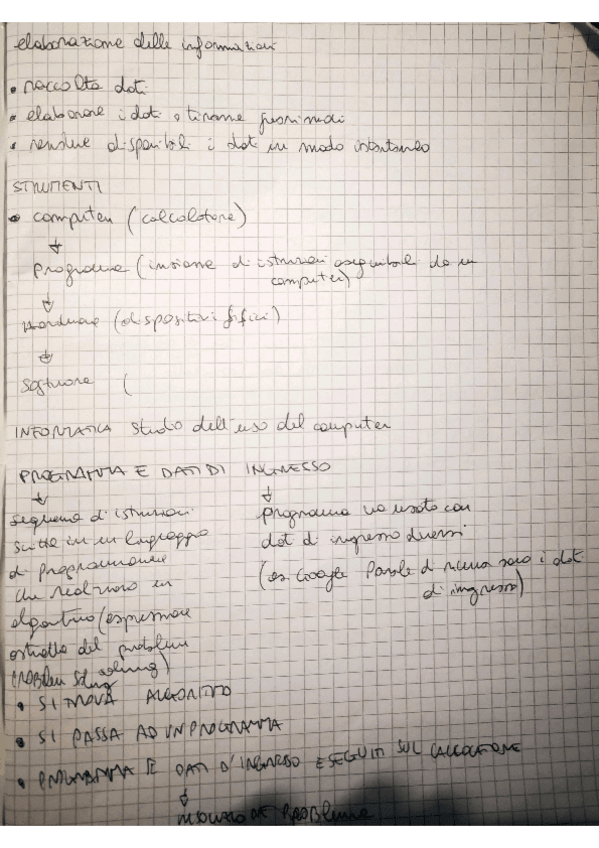 elaborazione delle informazioni
• raccolta dati
• elaborare i dati e tirarne fuori
• rendere disponibili i dati in modo istantaneo
STRUMENTI
• computer (calcolatore)
↓
programma (insieme di istruzioni eseguibili da un
computer)
↓
Hardware (dispositivi fisici)
↓
Software (
INFORMATICA studio dell'uso del computer
PROGRAMMA E DATI DI INGRESSO
↓ ↓
sequenza di istruzioni
scritte in un linguaggio
di programmazione
che realizzano un
algoritmo (espressione
astratta del problem
problem solving)
programma va usato con
dati di ingresso diversi
(es Google Parole di ricerca sono i dati
di ingresso)
• SI TROVA ALGORITMO
• SI PASSA AD UN PROGRAMMA
• PROGRAMMA E DATI D'INGRESSO ESEGUITI SUL CALCOLATORE
↓